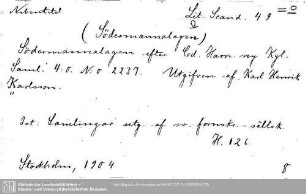 Nebentitel
Lit. Scand. 49
(Södermannalagen)
Södermannalagen efter Cod. Havn. ny Kgl.
Saml. 4:o. N:o 2237. Utgifven af Karl Henrik
Karlsson.
Ist. Samlingar utg. af sv. fornskr. sällsk.
H. 126.
Stockholm, 1904
8
Sächsische Landesbibliothek -
Staats- und Universitätsbibliothek Dresden